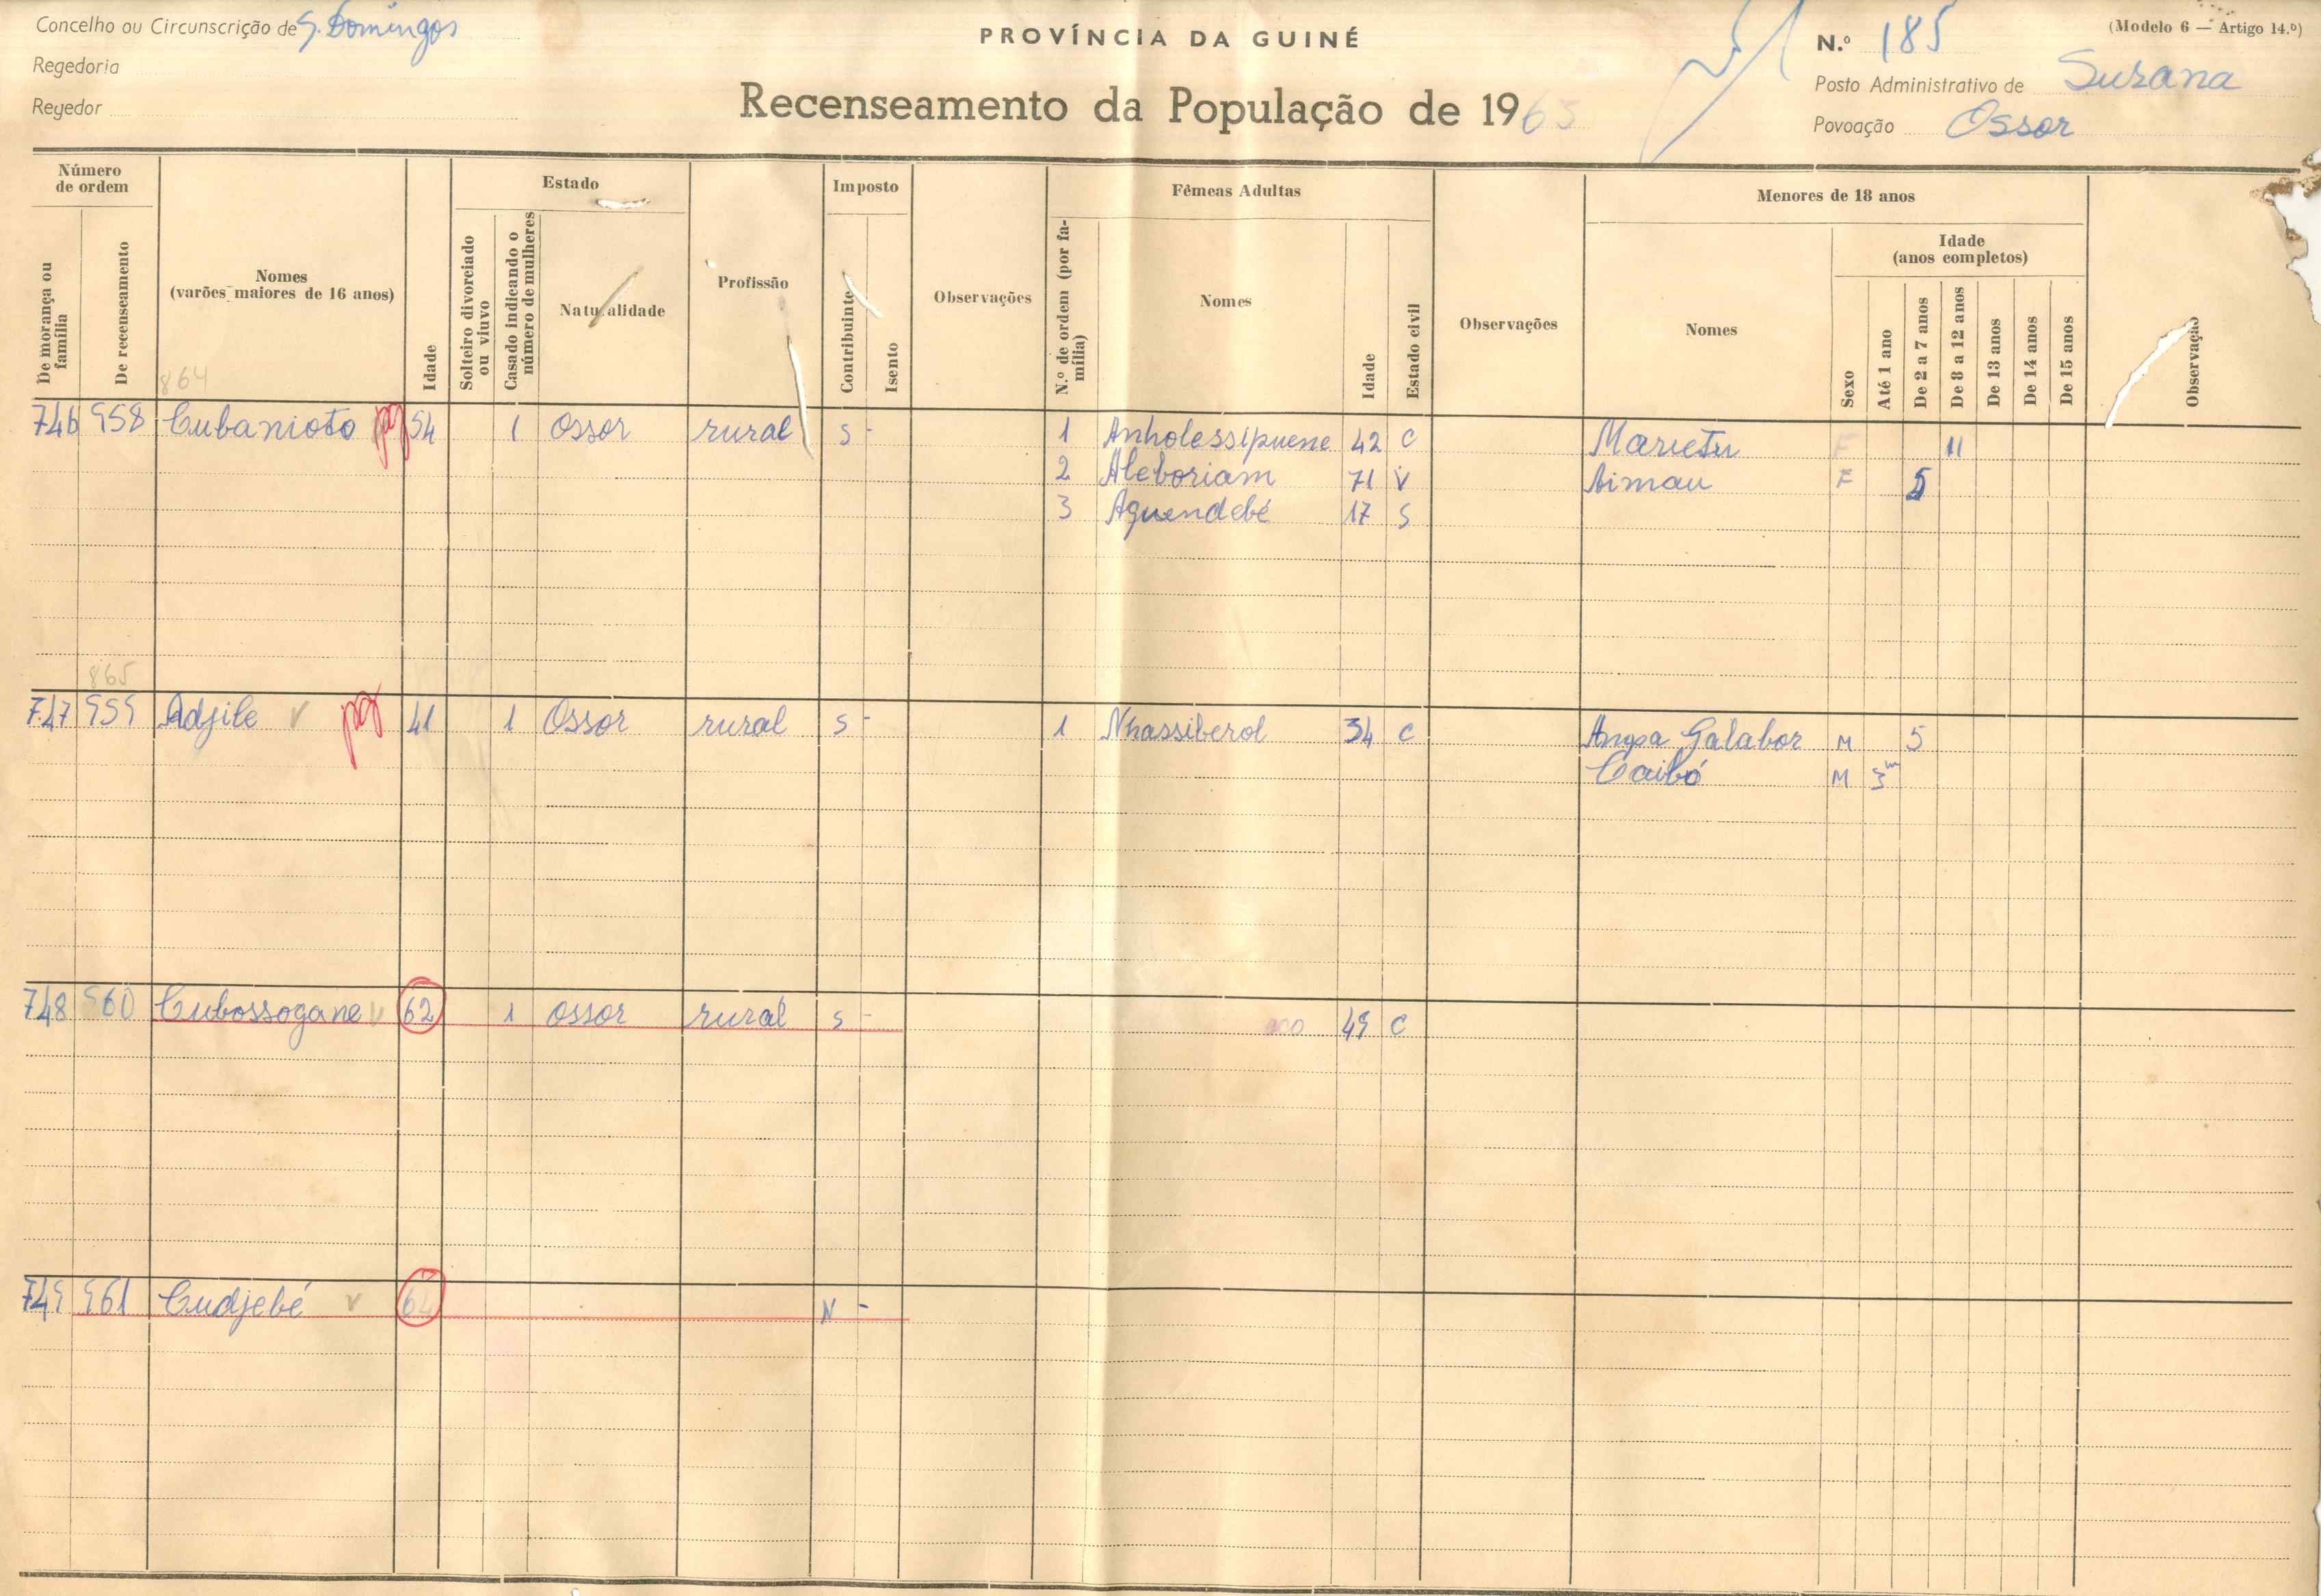 Concelho ou Circunscrição de S. Domingos
PROVÍNCIA DA GUINÉ
N.º 185
(Modelo 6 — Artigo 14.º)
Regedoria
Posto Administrativo de Suzana
Regedor
Recenseamento da População de 1963
Povoação Ossor
Número de ordem
De morança ou família
De recenseamento
Nomes
(varões maiores de 16 anos)
Idade
Estado
Solteiro divorciado ou viuvo
Casado indicando o número de mulheres
Naturalidade
Profissão
Imposto
Contribuinte
Isento
Observações
Fêmeas Adultas
N.º de ordem (por família)
Nomes
Idade
Estado civil
Observações
Menores de 18 anos
Nomes
Sexo
Idade
(anos completos)
Até 1 ano
De 2 a 7 anos
De 8 a 12 anos
De 13 anos
De 14 anos
De 15 anos
Observação
864
746 958 Cubanioto pg 54 1 Ossor rural S - 1 Anholessipuene 42 C Marietu F 11
2 Aleboriam 71 V Aimau F 5
3 Aguendebé 17 S
865
747 959 Adjile V pg 41 1 Ossor rural S - 1 Nhassiberol 34 C Angsa Galabor M 5
Caibó M 3m
748 960 Cubossogane V 62 1 Ossor rural S - 49 C
749 961 Cudjebé V 64 N -